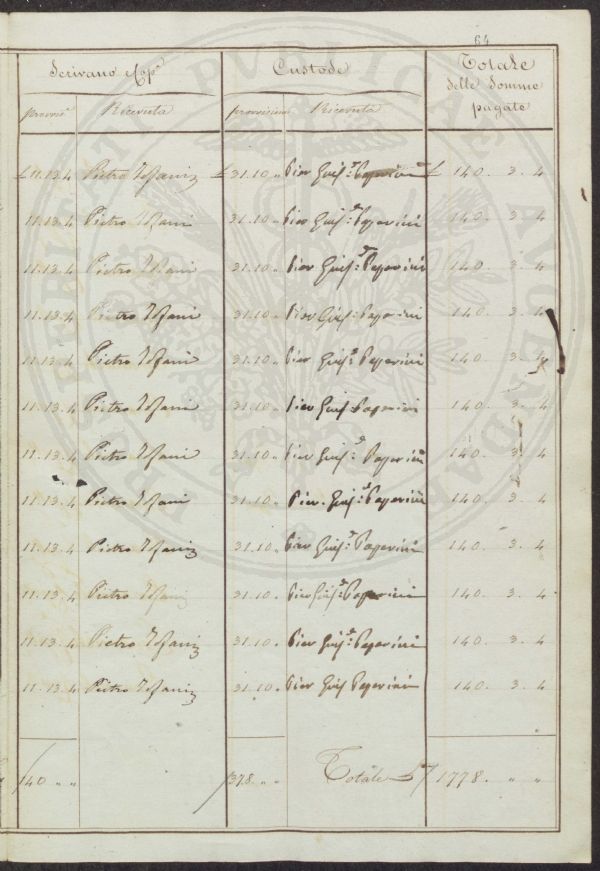 64
Scrivano Cop.e
Custode
Totale
delle Somme
pagate
provis.e Ricevuta provvisione Ricevuta
£ 11.13.4 Pietro Tofani £ 31.10 „ Pier Gius.e Paperini £ 140. 3. 4
11.13.4 Pietro Tofani 31.10 „ Pier Gius.e Paperini 140. 3. 4
11.13.4 Pietro Tofani 31.10 „ Pier Gius.e Paperini 140. 3. 4
11.13.4 Pietro Tofani 31.10 „ Pier Gius.e Paperini 140. 3. 4
11.13.4 Pietro Tofani 31.10 „ Pier Gius.e Paperini 140. 3. 4
11.13.4 Pietro Tofani 31.10 „ Pier Gius.e Paperini 140. 3. 4
11.13.4 Pietro Tofani 31.10 „ Pier Gius.e Paperini 140. 3. 4
11.13.4 Pietro Tofani 31.10 „ Pier. Gius.e Paperini 140. 3. 4
11.13.4 Pietro Tofani 31.10 „ Pier Gius.e Paperini 140. 3. 4
11.13.4 Pietro Tofani 31.10 „ Pier Gius.e Paperini 140. 3. 4
11.13.4 Pietro Tofani 31.10 „ Pier Gius.e Paperini 140. 3. 4
11.13.4 Pietro Tofani 31.10 „ Pier Gius Paperini 140. 3. 4
140 „ „ 378 „ „ Totale £ 1778. „ „
PROSPERITATI PUBLICAE AVGENDAE